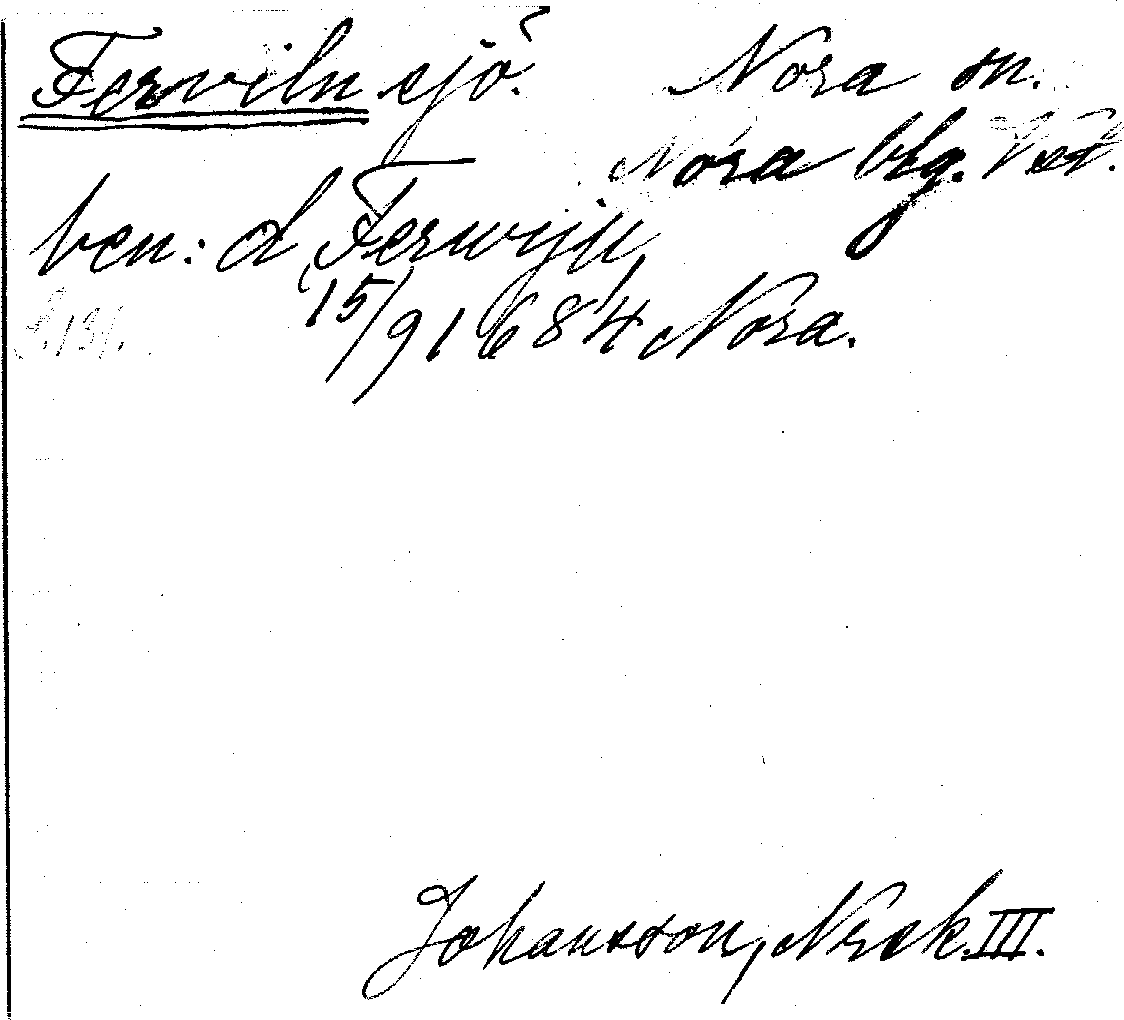 Ferviln sjö. Nora sn.
Nora bsg. Vstl.
ben: d Ferwijn
15/9 1684 Nora.
s. 131.
Johansson, Nrek. III.